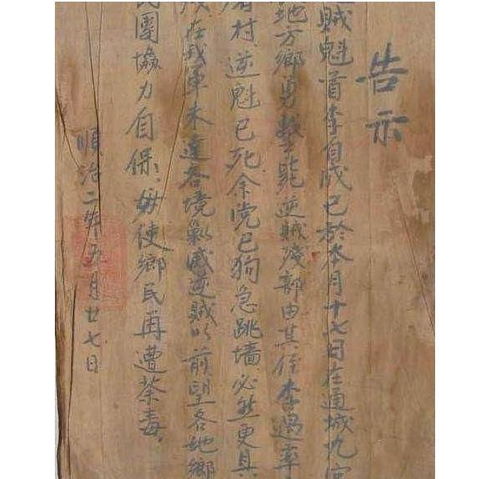 告示
賊魁首李自成已於本月十七日在通城九宮
地方鄉勇擊斃逆賊殘部由其侄李過率
村、逆魁已死余党已狗急跳墙、必然更具
在我軍未達各境剿滅逆賊以前望各地鄉
民團協力自保、毋使鄉民再遭荼毒、
順治二年五月廿七日